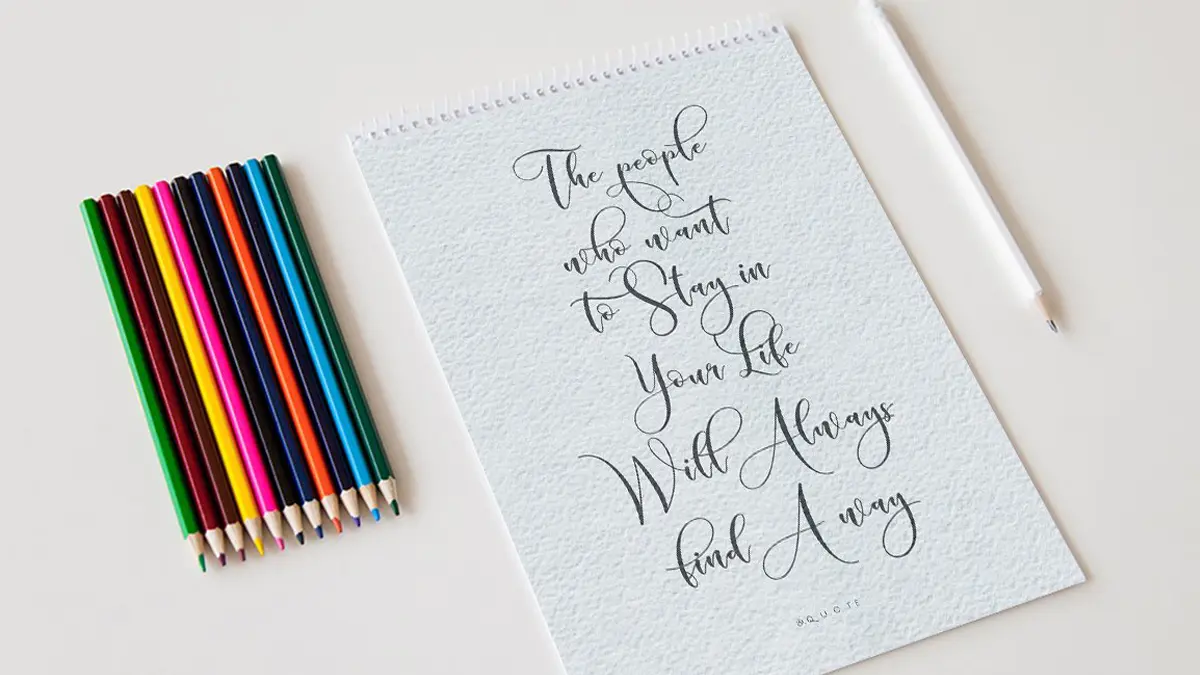 The people
who want
to Stay in
Your Life
Will Always
find A way
&QUOTE